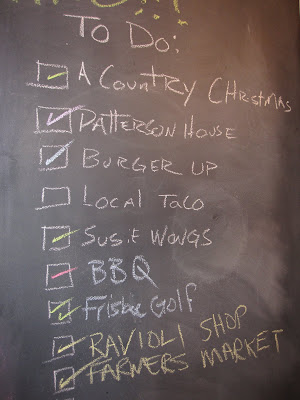 To Do:
A Country Christmas
Patterson House
Burger Up
Local Taco
Susie Wongs
BBQ
Frisbe Golf
Ravioli Shop
Farmers Market